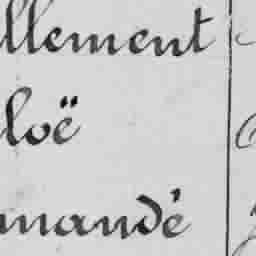 llement
loë
mandé